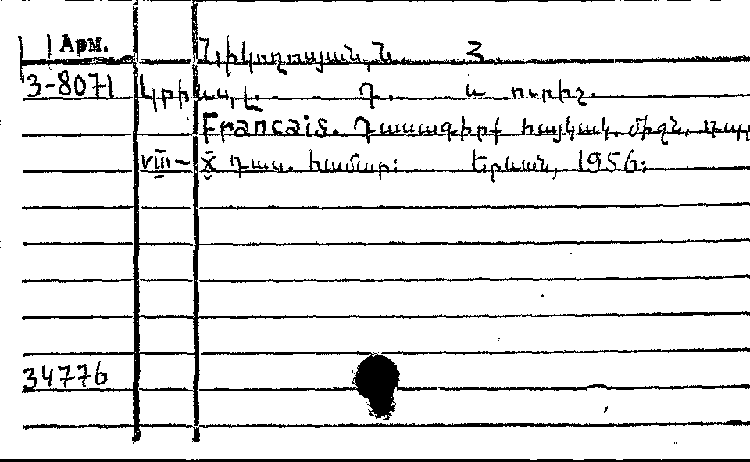 Арм. Նիկողոսյան, Ն. Հ.
3-8071 Գ. և ուրիշ.
Francais. Դասագիրք հայկակ. միջն. դպր
VIII – X դաս. համար: Երևան, 1956:
34776